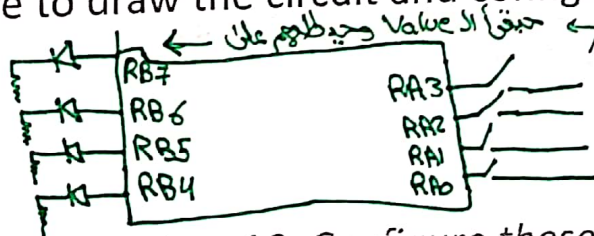 e to draw the circuit and
حيقرأ الـ Value وحيطلعهم على
RB7
RB6
RB5
RB4
RA3
RA2
RA1
RA0